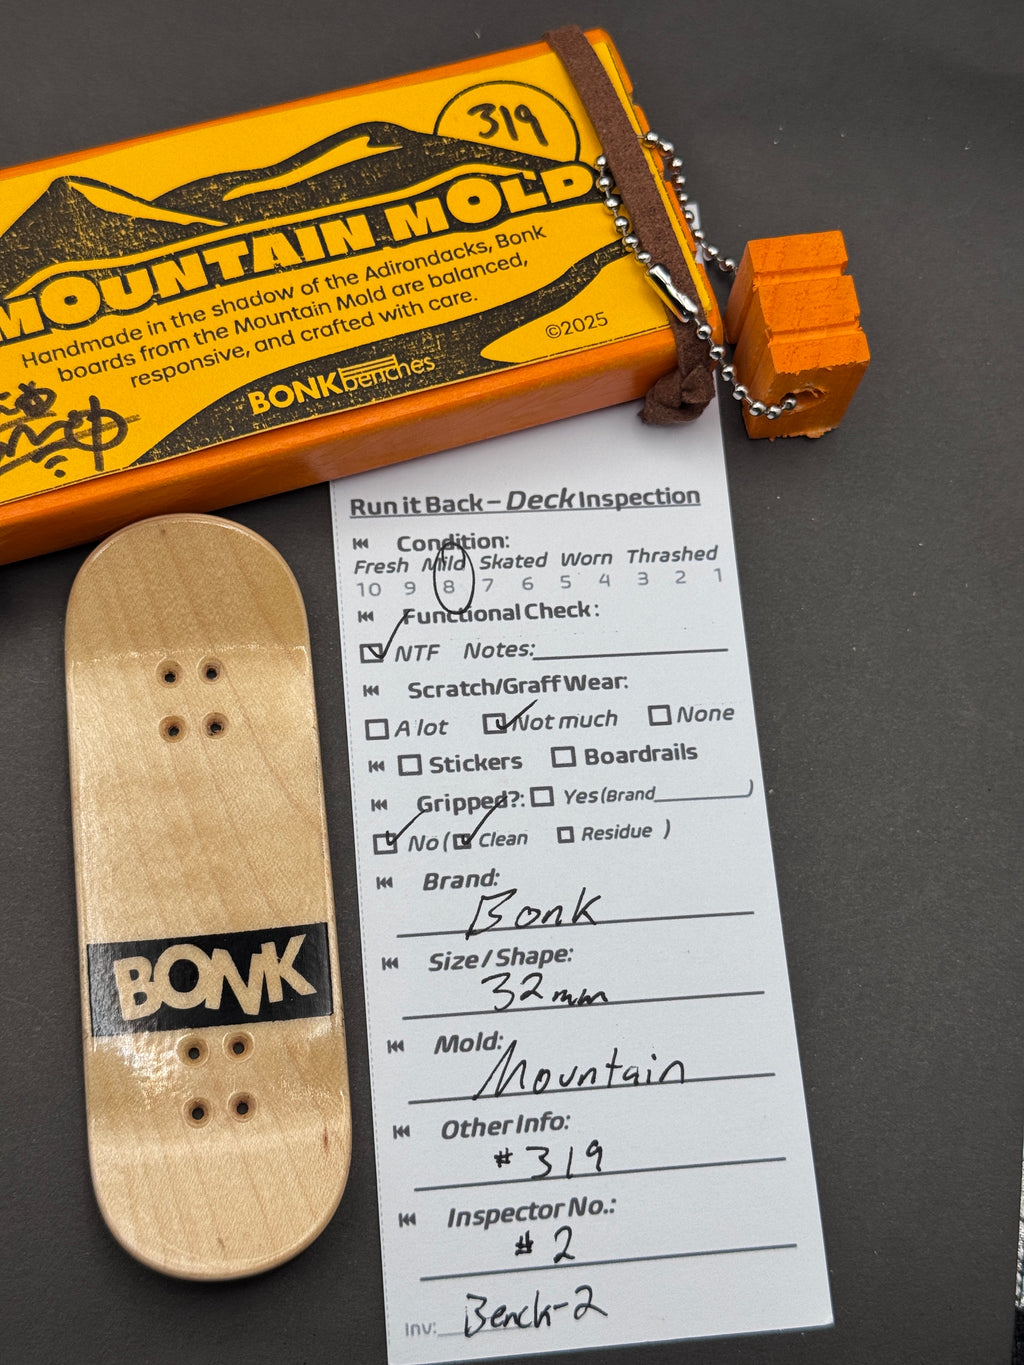 319
MOUNTAIN MOLD
Handmade in the shadow of the Adirondacks, Bonk
boards from the Mountain Mold are balanced,
responsive, and crafted with care.
©2025
BONKbenches
Run it Back – Deck Inspection
Condition:
Fresh Mild Skated Worn Thrashed
10 9 8 7 6 5 4 3 2 1
Functional Check:
NTF Notes:
Scratch/Graff Wear:
A lot Not much None
Stickers Boardrails
Gripped?: Yes (Brand )
No ( Clean Residue )
Brand:
Bonk
Size/Shape:
32mm
Mold:
Mountain
Other Info:
#319
Inspector No.:
#2
Inv: Bench-2
BONK